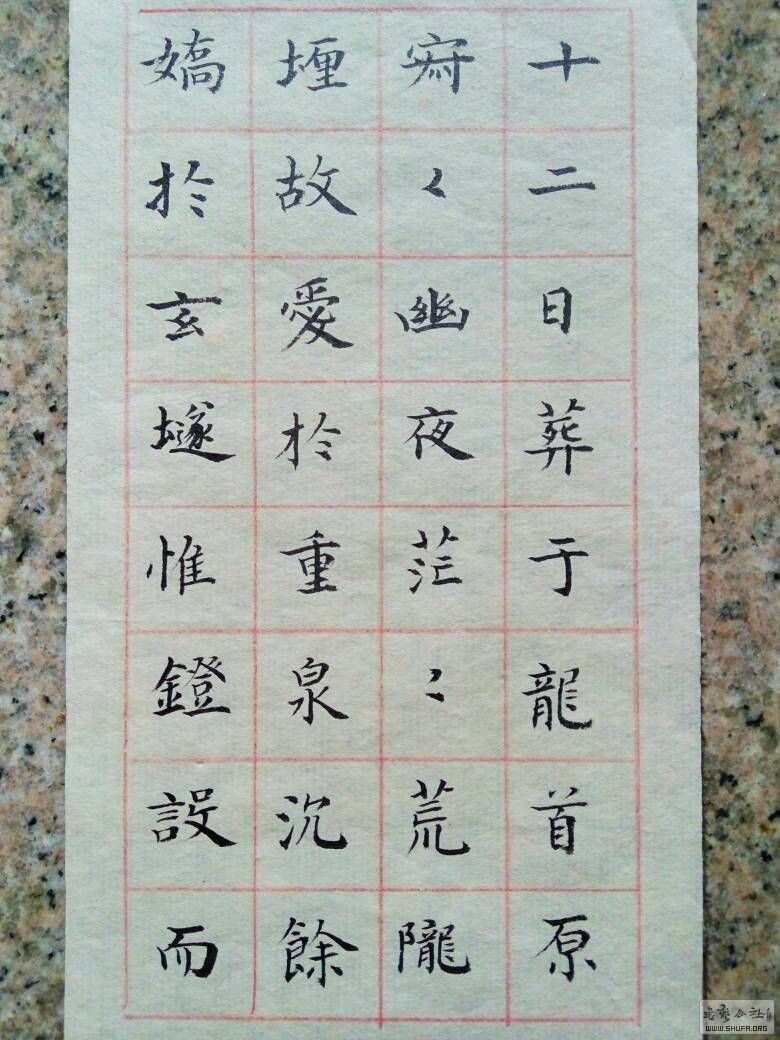 十二日葬于龍首原
寂〻幽夜茫〻荒隴
堙故愛於重泉沉餘
嬌於玄墜惟鐙設而
WWW.SHUFA.ORG